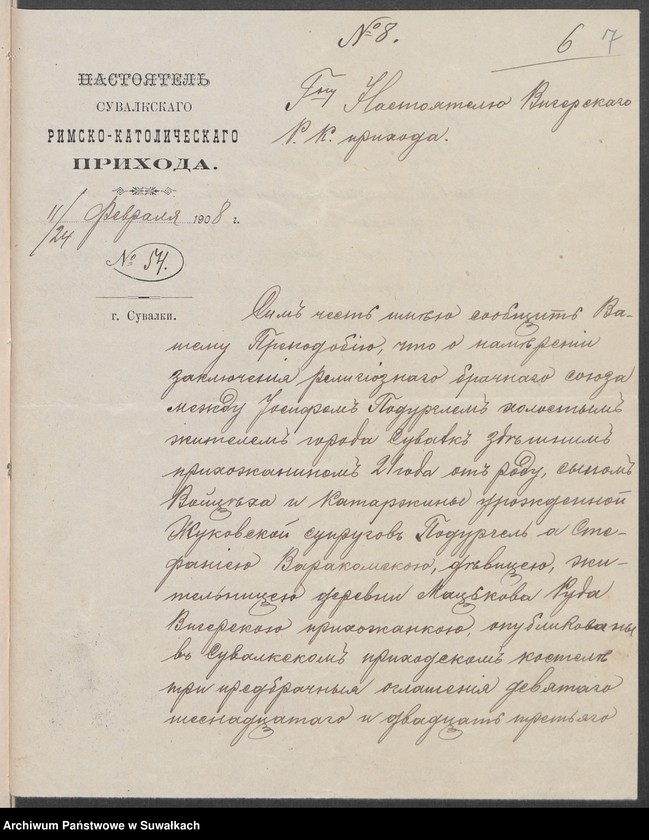 № 8.
6 7
НАСТОЯТЕЛЬ
СУВАЛКСКАГО
РИМСКО-КАТОЛИЧЕСКАГО
ПРИХОДА.
11/24 Февраля 1908 г.
№ 54.
г. Сувалки.
Гну Настоятелю Вигерскаго
Р. К. прихода.
Симъ честь имѣю сообщить Ва-
шему Преподобію, что о намѣреніи
заключенія религіознаго брачнаго союза
между Іосифомъ Подургелемъ холостымъ
жителемъ города Сувалкъ здѣшнимъ
прихожаниномъ 21 года отъ роду, сыномъ
Войцѣха и Катаржины урожденной
Жуковской супруговъ Подургель а Сте-
фаніею Варакомскою, дѣвицею, жи-
тельницею деревни Мацькова Руда
Вигерскою прихожанкою, опубликованы
въ Сувалкскомъ приходскомъ костелѣ
три предбрачныя оглашенія девятаго
шеснадцатаго и двадцать третьяго
Archiwum Państwowe w Suwałkach